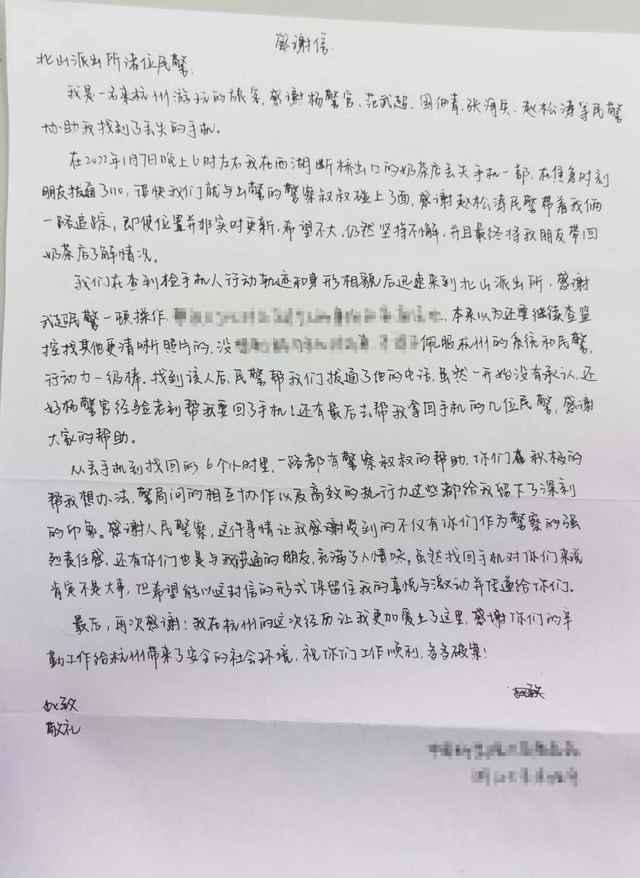 感谢信
北山派出所诸位民警:
我是一名来杭州游玩的旅客,感谢杨警官、范武超、周仲青、张海兵、赵松涛等民警
协助我找到了丢失的手机。
在2022年1月7日晚上6时左右我在西湖断桥出口的奶茶店丢失手机一部,在焦急时刻
朋友拨通了110,很快我们就与出警的警察叔叔碰上了面,感谢赵松涛民警带着我俩
一路追踪,即使位置并非实时更新,希望不大,仍然坚持不懈,并且最终将我朋友带回
奶茶店了解情况。
我们在查到捡手机人行动轨迹和身形相貌后迅速来到北山派出所,感谢
民警一顿操作 本来以为还要继续查监
控找其他更清晰照片的,没 佩服杭州的系统和民警,
行动力一级棒。找到该人后,民警帮我们拨通了他的电话,虽然一开始没有承认,还
好杨警官经验老到帮我要回了手机!还有最后去帮我拿回手机的几位民警,感谢
大家的帮助。
从丢手机到找回的6个小时里,一路都有警察叔叔的帮助,你们积极的
帮我想办法,警局间的相互协作以及高效的执行力这些都给我留下了深刻
的印象。感谢人民警察,这件事情让我感谢受到的不仅有你们作为警察的强
烈责任感,还有你们也是与我共通的朋友,充满了人情味,虽然找回手机对你们来说
肯定不是大事,但希望能以这封信的形式保留住我的喜悦与激动并传递给你们。
最后,再次感谢!我在杭州的这次经历让我更加爱上了这里,感谢你们的辛
勤工作给杭州带来了安全的社会环境,祝你们工作顺利,多多破案!
此致
敬礼